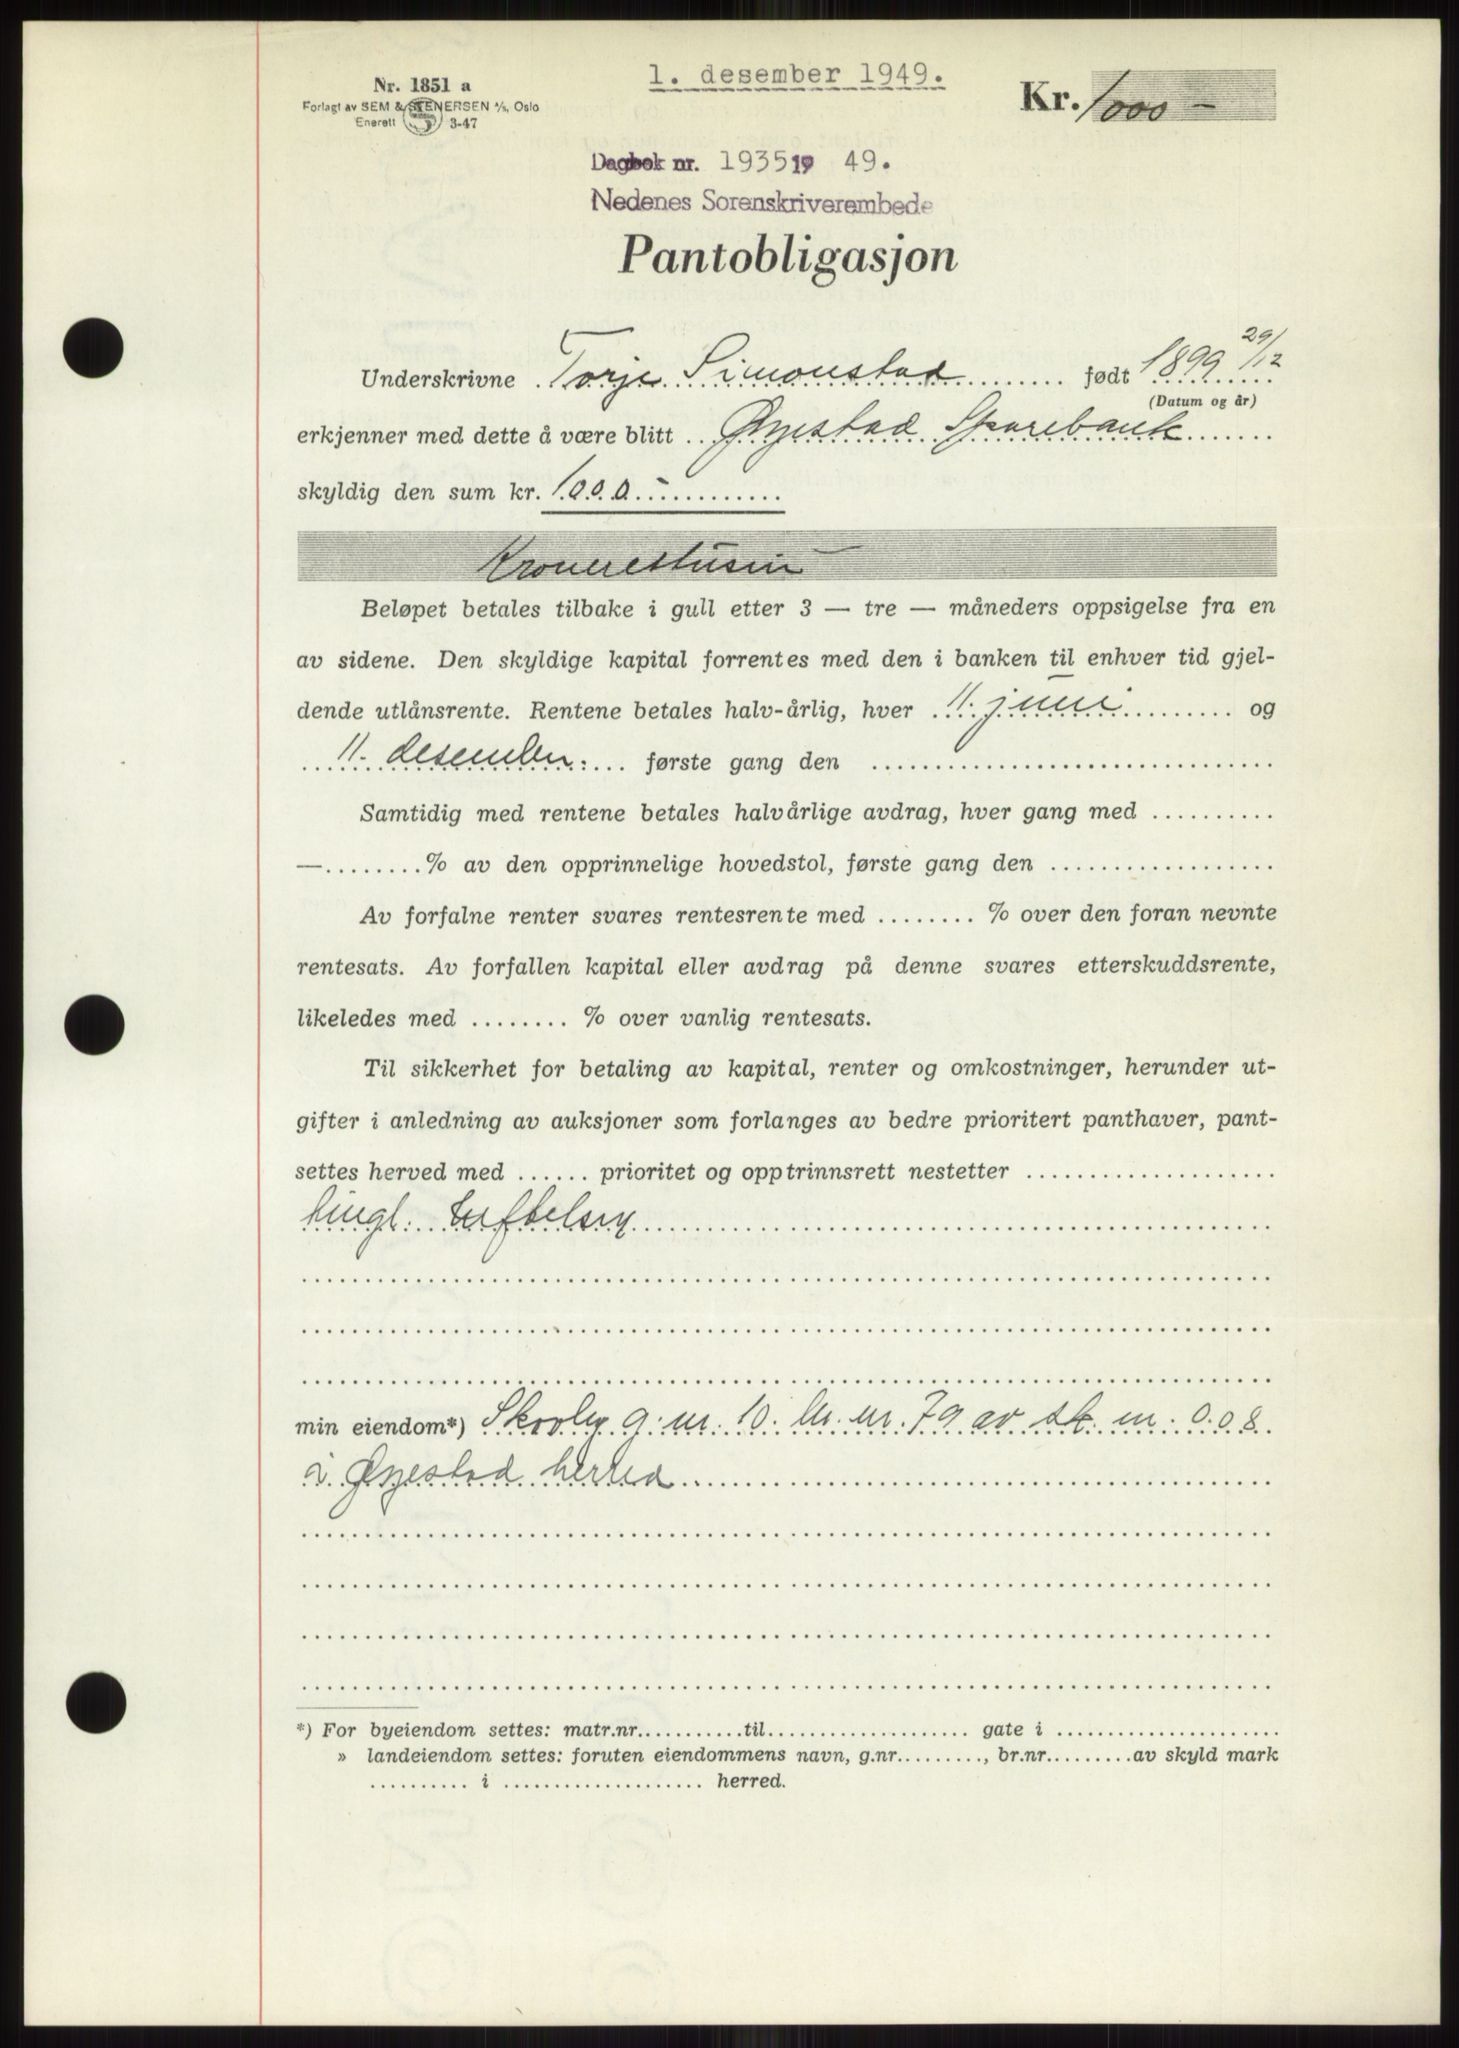 1. desember 1949.
Nr. 1851 a
Forlagt av SEM & STENERSEN A/s, Oslo
Enerett 3-47
Kr. 1000 —
Dagbok nr. 1935 19 49.
Nedenes Sorenskriverembede
Pantobligasjon
Underskrivne Torje Simonstad født 1899 29/12
(Datum og år)
erkjenner med dette å være blitt Øyestad Sparebank
skyldig den sum kr. 1000 -
Kroneettusin —
Beløpet betales tilbake i gull etter 3 — tre — måneders oppsigelse fra en
av sidene. Den skyldige kapital forrentes med den i banken til enhver tid gjel-
dende utlånsrente. Rentene betales halv-årlig, hver 11. juni og
11. desember. første gang den
Samtidig med rentene betales halvårlige avdrag, hver gang med
— % av den opprinnelige hovedstol, første gang den
Av forfalne renter svares rentesrente med % over den foran nevnte
rentesats. Av forfallen kapital eller avdrag på denne svares etterskuddsrente,
likeledes med % over vanlig rentesats.
Til sikkerhet for betaling av kapital, renter og omkostninger, herunder ut-
gifter i anledning av auksjoner som forlanges av bedre prioritert panthaver, pant-
settes herved med prioritet og opptrinnsrett nestetter
tingl. heftelser
min eiendom*) g. nr. 10. br. nr. 79 av sk. m. 0.08
i Øyestad herred
*) For byeiendom settes: matr.nr. til gate i
» landeiendom settes: foruten eiendommens navn, g.nr. , br.nr. av skyld mark
i herred.